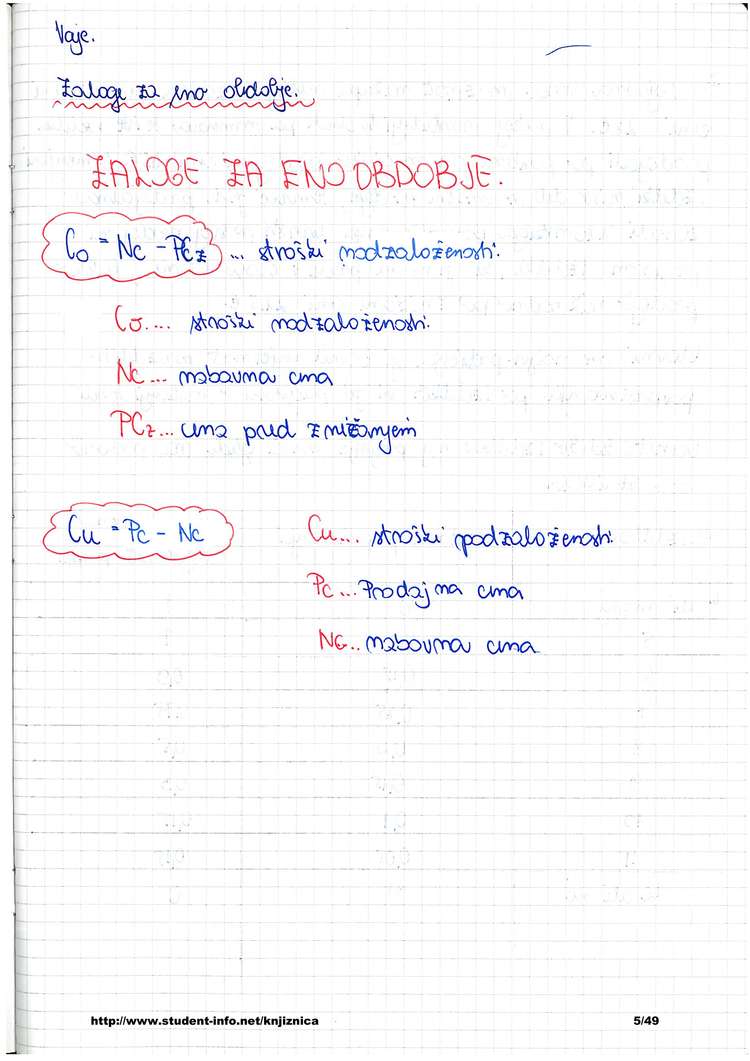 Vaje.
Zaloge za eno obdobje.
ZALOGE ZA ENO OBDOBJE.
Co = Nc - PCz ... stroški nadzaloženosti.
Co.... stroški nadzaloženosti.
Nc... nabavna cena
PCz... cena pred znižanjem
Cu = Pc - Nc
Cu... stroški podzaloženosti.
Pc... Prodajna cena
Nc.. nabavna cena
http://www.student-info.net/knjiznica 5/49